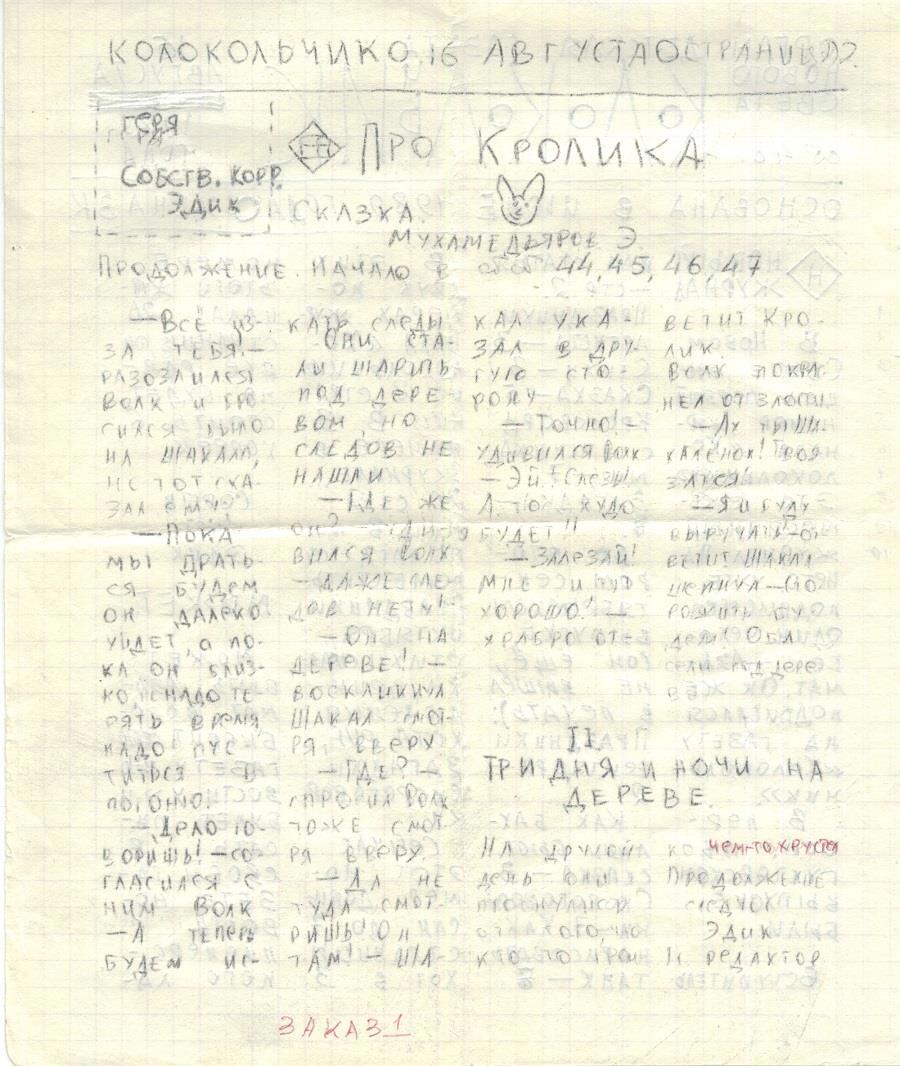 КОЛОКОЛЬЧИКО, 16 АВГУСТАОСТРАНИЦА2.
СОБСТВ. КОРР.
ЭДИК
ПРО КРОЛИКА
СКАЗКА.
МУХАМЕДЬЯРОВ Э.
ПРОДОЛЖЕНИЕ. НАЧАЛО В 44, 45, 46, 47
—ВСЁ ИЗ-
ЗА ТЕБЯ!—
РАЗОЗЛИЛСЯ
ВОЛК И БРО
СИЛСЯ БЫЛО
НА ШАКАЛА,
НО ТОТ СКА-
ЗАЛ ЕМУ:
—ПОКА
МЫ ДРАТЬ-
СЯ БУДЕМ
ОН ДАЛЕКО
УЙДЕТ, а ПО-
КА ОН БЛИЗ-
КО НЕНАДО ТЕ
РЯТЬ ВРЕМЯ,
НАДО ПУС
ТИТЬСЯ В
ПОГОНЮ.
—ДЕЛО ГО-
ВОРИШЬ!—СО-
ГЛАСИЛСЯ С
НИМ ВОЛК
—А ТЕПЕРЬ
БУДЕМ ИС-
КАТЬ СЛЕДЫ
ОНИ СТА-
ЛИ ШАРИТЬ
ПОД ДЕРЕ
ВОМ, НО
СЛЕДОВ НЕ
НАШЛИ
—ГДЕ ЖЕ
ОН?—УДИ-
ВИЛСЯ ВОЛК
—ДАЖЕ СЛЕ-
ДОВ НЕТУ!—
—ОН НА
ДЕРЕВЕ!—
ВОСКЛИКНУЛ
ШАКАЛ СМОТ-
РЯ, ВВЕРУ
—ГДЕ?—
СПРОСИЛ ВОЛК
ТОЖЕ СМОТ
РЯ ВВЕРУ.
—ДА НЕ
ТУДА СМОТ
РИШЬ! ОН
ТАМ!—ША-
КАЛ УКА-
ЗАЛ В ДРУ-
ГУЮ — СТО-
РОНУ
—ТОЧНО!—
УДИВИЛСЯ ВОЛК
—ЭЙ! СЛЕЗЬ!
А. ТО ХУДО
БУДЕТ!!
—ЗАЛЕЗАЙ!
МНЕ И ТУТ
ХОРОШО!—
ХРАБРО ОТ-
ВЕТИТ КРО-
ЛИК.
ВОЛК ПОКРАС
НЕЛ ОТ ЗЛОСТИ
—АХ ТЫ ШИ.
КАЛЁНОК!
—Я И БУДУ
ВЫРУЧАТЬ!—ОТ
ВЕТИТ ШАКАЛ
СЕЛИ ПОД ДЕРЕ
ВО
II
ТРИ ДНЯ И НОЧИ НА
ДЕРЕВЕ.
НА ДРУГОЙ
ДЕНЬ ОНИ
ПРОСНУЛИСЬ
ОТ ТОГО ЧТО
КТО ТО
ЧЕМ-ТО ХРУСТЕЛ
ПРОДОЛЖЕНИЕ
СЛЕДУЕТ
ЭДИК
РЕДАКТОР
ЗАКАЗ 1